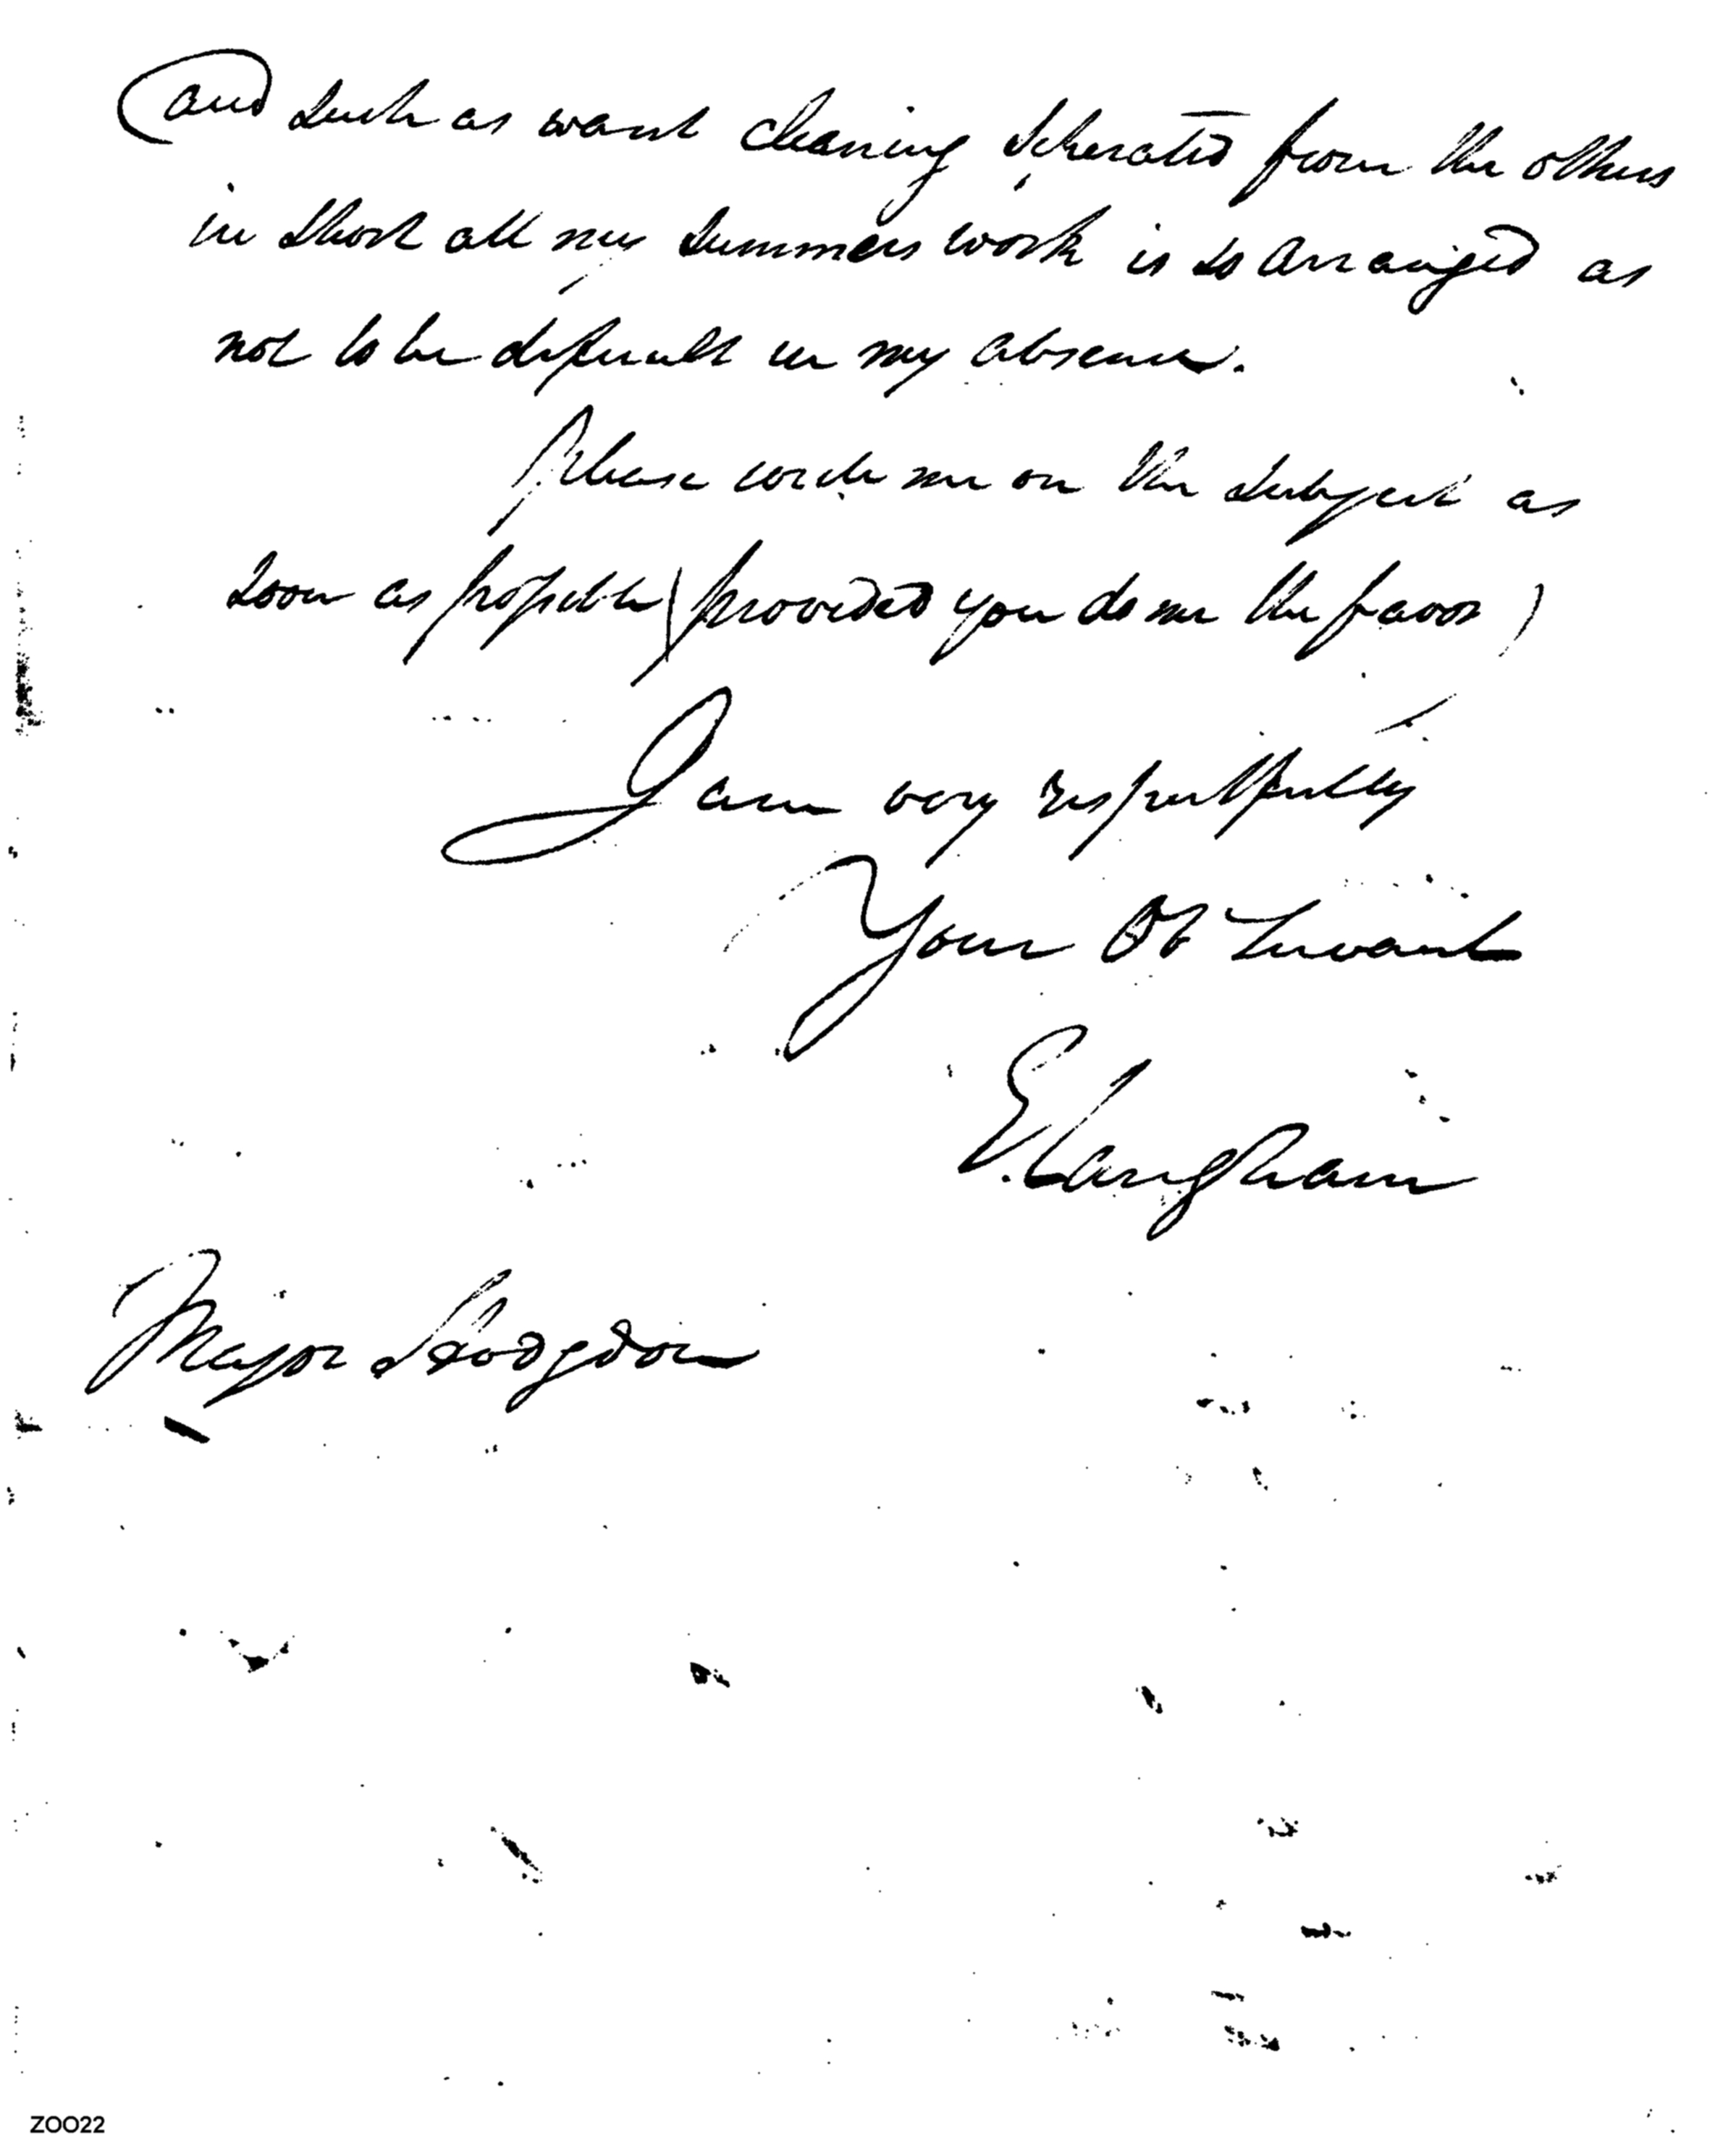 and such as want cleaning seperated from the others
in short all my summers work is so arranged as
not to be difficult in my absence.
Please write me on the subject as
soon as possible (provided you do me the favor)
I am very respectfully
Your Ob Servant
E. Langham
Major Stoddon
ZOO22